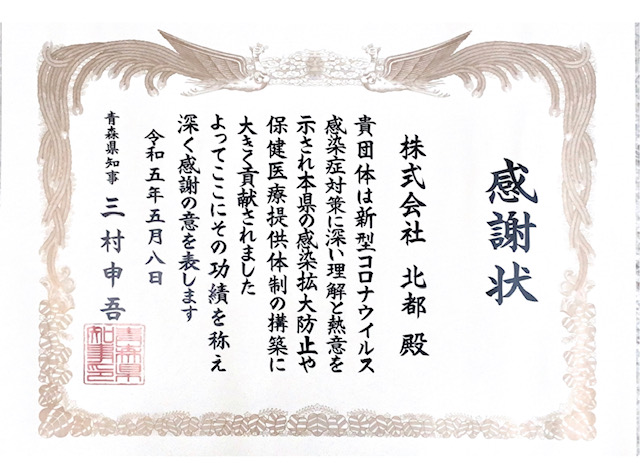 感謝状
株式会社 北都 殿
貴団体は新型コロナウイルス
感染症対策に深い理解と熱意を
示され本県の感染拡大防止や
保健医療提供体制の構築に
大きく貢献されました
よってここにその功績を称え
深く感謝の意を表します
令和五年五月八日
青森県知事 三村申吾
青森県
知事之印